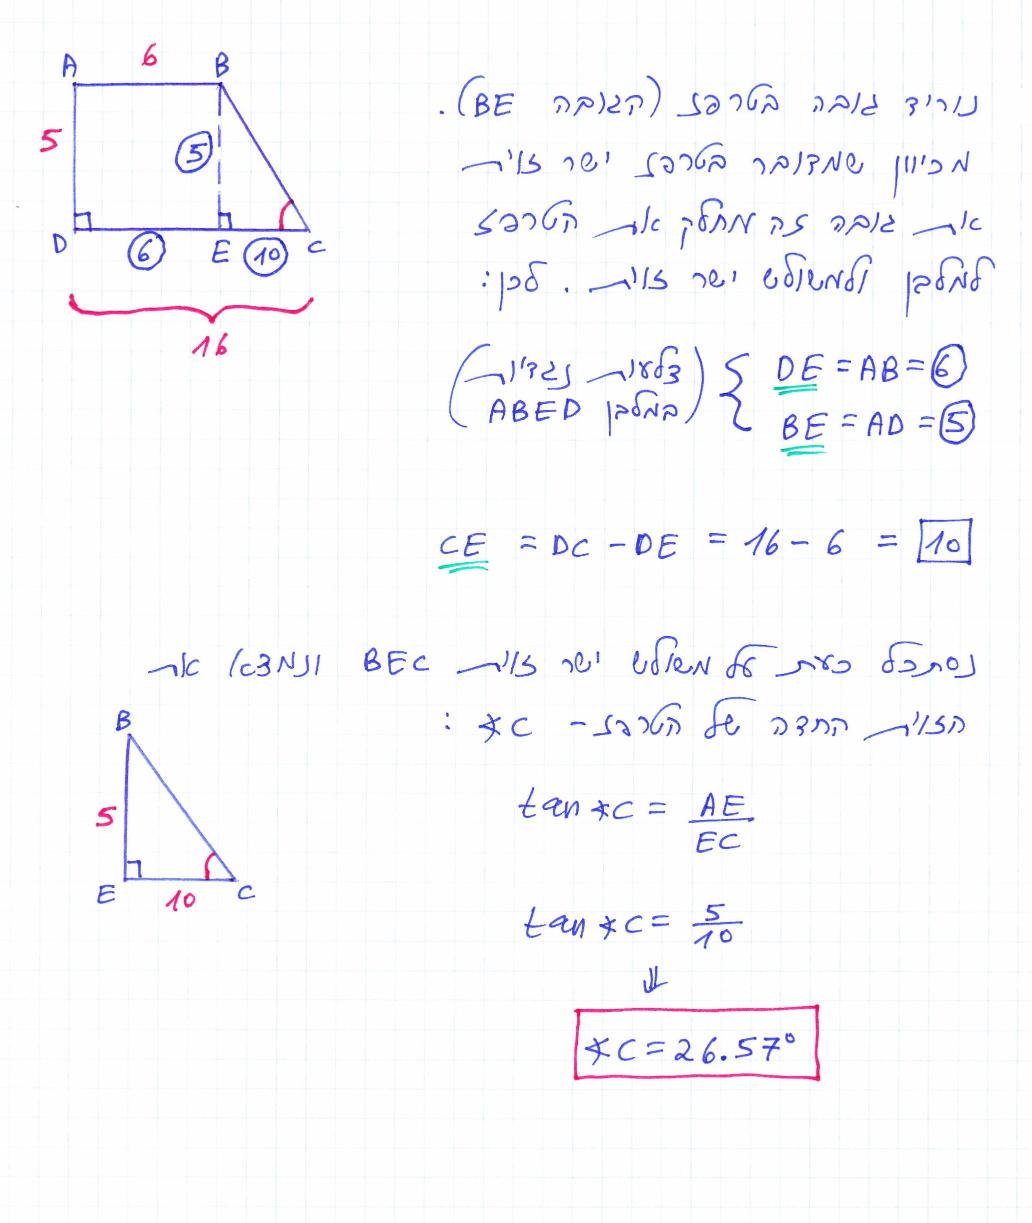 6
A B
5
5
D 6 E 10 C
16
נוריד גובה בטרפז (הגובה BE).
מכיוון שמדובר בטרפז ישר זוית
אז גובה זה מחלק את הטרפז
למלבן ולמשולש ישר זוית. לכן:
(צלעות נגדיות במלבן ABED)
DE = AB = 6
BE = AD = 5
CE = DC - DE = 16 - 6 = 10
נסתכל כעת על משולש ישר זוית BEC ונמצא את
הזוית החדה של הטרפז - ∢C :
B
5
E 10 C
tan∢C = AE/EC
tan∢C = 5/10
⇓
∢C = 26.57°